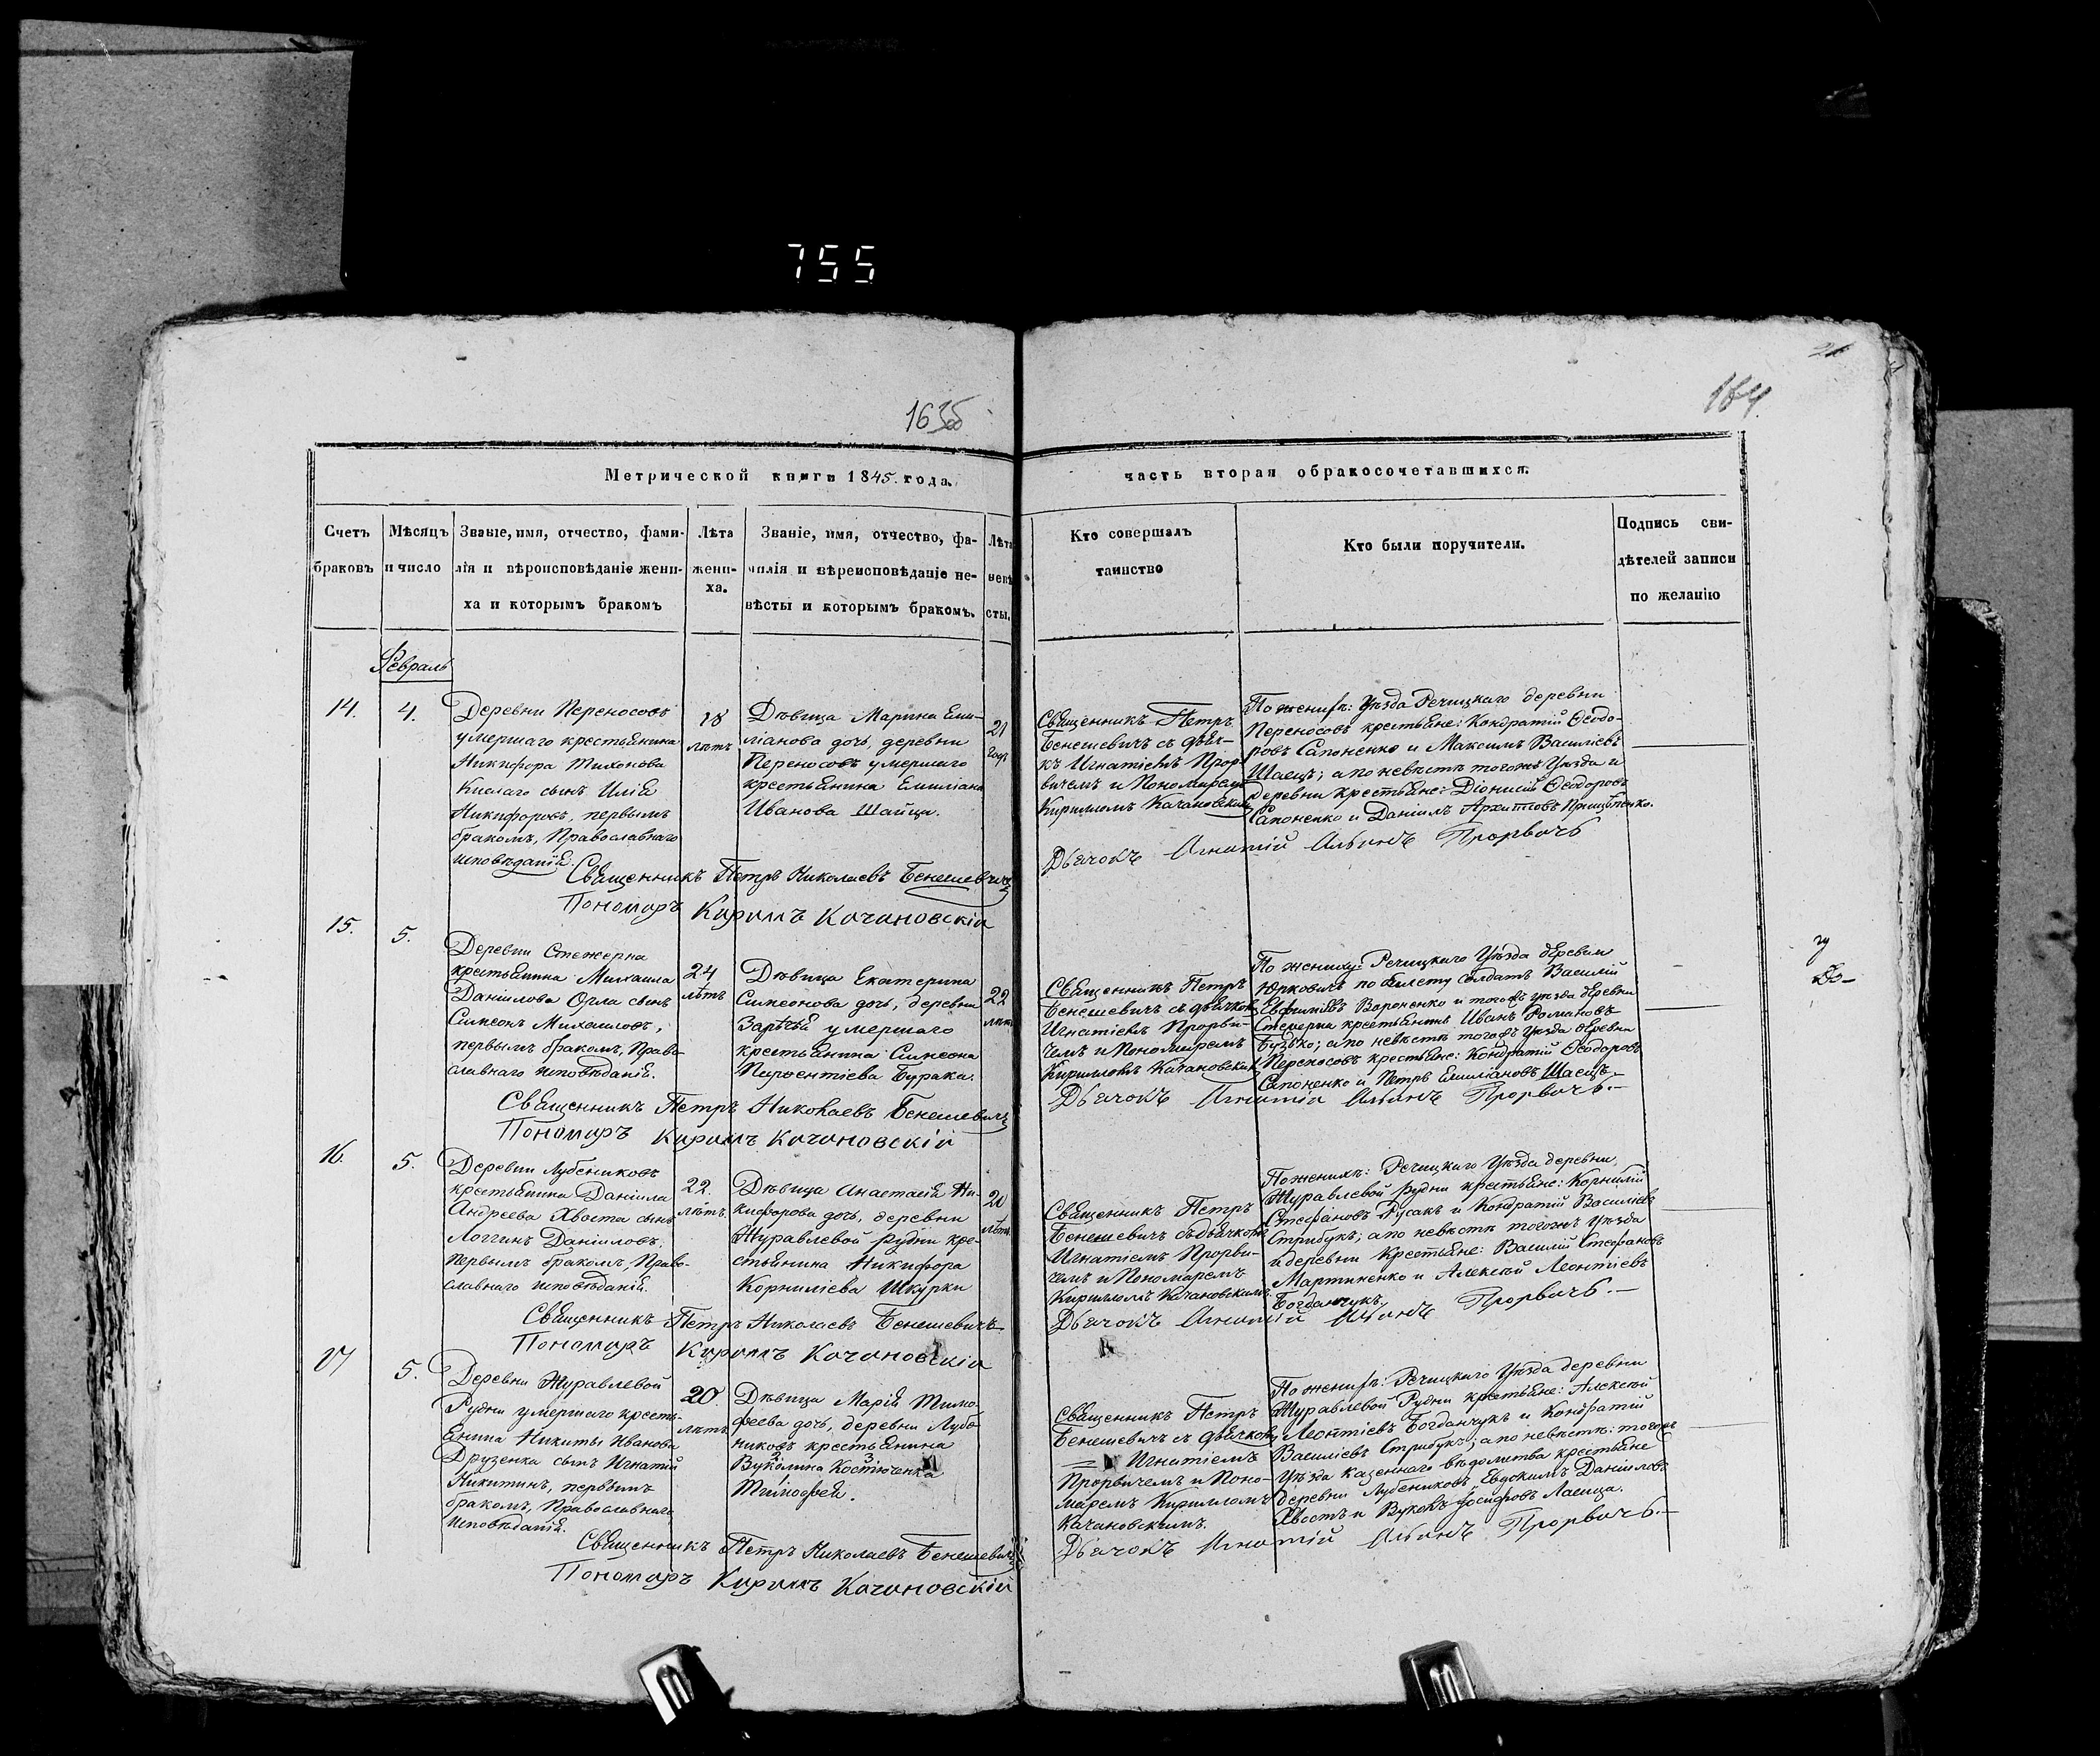 755
163об
164
Метрической книги 1845. года.
часть вторая обракосочетавшихся.
Счетъ браковъ
Мѣсяцъ и число
Званіе, имя, отчество, фами-
лія и вѣроисповѣданіе жени-
ха и которымъ бракомъ
Лѣта
жени-
ха.
Званіе, имя, отчество, фа-
милія и вѣреисповѣданіе не-
вѣсты и которымъ бракомъ.
Лѣта
невѣ
сты.
Кто совершалъ
таинство
Кто были поручители.
Подпись сви-
дѣтелей записи
по желанію
Февраль
14.
4.
Деревни Переносовъ
умершаго крестьянина
Никифора Тихонова
Кислаго сынъ Илія
Никифоровъ, первымъ
бракомъ, Православнаго
исповѣданія.
18
лѣтъ
Дѣвица Марина Еми-
ліанова дочь, деревни
Переносовъ умершаго
крестьянина Емиліана
Иванова Шайца.
21
год.
Священникъ Петръ
Бенешевичъ съ дьяч-
къ Игнатіемъ Прор-
вичемъ и Пономаремъ
Кирилломъ Качановскимъ
По женихѣ: Уѣзда Речицкаго деревни
Переносовъ крестьяне: Кондратій Ѳеодо-
ровъ Сапоненко и Максимъ Василіевъ
Шаецъ; а по невѣстѣ тогожъ Уѣзда и
деревни крестьяне: Діонисій Ѳеодоровъ
Сапоненко и Даніилъ Архиповъ Прищепенко.
Священникъ Петръ Николаевъ Бенешевичъ
Дьячокъ Игнатій Альинъ Прорвичъ
Пономаръ Кирилъ Качановскій
15.
5.
Деревни Стежерна
крестьянина Михаила
Даніилова Орла сынъ
Симеонъ Михаиловъ,
первымъ бракомъ, Право
славнаго исповѣданія.
24
лѣтъ
Дѣвица Екатерина
Симеонова дочь, деревни
Зарѣчья умершаго
крестьянина Симеона
Парѳентіева Бурака.
22
лѣтъ
Священникъ Петръ
Бенешевичъ съ дьячкомъ
Игнатіемъ Прорви-
чемъ и Пономаремъ
Кирилломъ Качановскимъ
По жениху: Речицкаго Уѣзда деревни
Юрковичъ по билету Солдатъ Василій
Евфиміевъ Вороненко и тогожъ уѣзда деревни
Стежерни крестьянинъ Иванъ Романовъ
Бузько; а по невѣстѣ тогожъ Уѣзда деревни
Переносовъ крестьяне: Кондратій Ѳеодоровъ
Сапоненко и Петръ Емиліановъ Шаецъ.
Священникъ Петръ Николаевъ Бенешевичъ
Дьячокъ Игнатій Альинъ Прорвичъ.
Пономаръ Кирилъ Качановскій
16.
5.
Деревни Лубениковъ
крестьянина Даніила
Андреева Хвоста сынъ
Логгинъ Даніиловъ,
первымъ бракомъ, Право-
славнаго исповѣданія.
22.
лѣтъ.
Дѣвица Анастасія Ни-
кифорова дочь, деревни
Журавлевой Рудни кре-
стьянина Никифора
Корниліева Шкурки
20
лѣтъ
Священникъ Петръ
Бенешевичъ съ дьячкомъ
Игнатіемъ Прорви-
чемъ и Пономаремъ
Кирилломъ Качановскимъ.
По женихѣ: Речицкаго Уѣзда деревни
Журавлевой Рудни крестьяне: Корнилій
Стефановъ Русакъ и Кондратій Василіевъ
Стрибукъ; а по невѣстѣ тогожъ уѣзда
и деревни Крестьяне: Василій Стефановъ
Мартиненко и Алексѣй Леонтіевъ
Богданчукъ.
Священникъ Петръ Николаевъ Бенешевичъ
Дьячокъ Игнатій Альинъ Прорвичъ.
Пономаръ Кирилъ Качановскій
17
5.
Деревни Журавлевой
Рудни умершаго кресть-
янина Никиты Иванова
Друзенка сынъ Игнатій
Никитинъ, первымъ
бракомъ, Православнаго
исповѣданія.
20.
лѣтъ
Дѣвица Марія Тимо-
феева дочь, деревни Лубе-
никовъ крестьянина
Вуколина Костюченка
Тимофея.
Священникъ Петръ
Бенешевичъ съ дьячкомъ
Игнатіемъ
Прорвичемъ и Поно-
маремъ Кирилломъ
Качановскимъ.
По женихѣ: Речицкаго Уѣзда деревни
Журавлевой Рудни крестьяне: Алексѣй
Леонтіевъ Богданчукъ и Кондратій
Василіевъ Стрибукъ; а по невѣстѣ: тогожъ
Уѣзда казеннаго вѣдомства крестьяне
деревни Лубениковъ, Евдокимъ Даніиловъ
Хвостъ и Вукокъ Іосифовъ Лаеица.
Священникъ Петръ Николаевъ Бенешевичъ
Дьячокъ Игнатій Альинъ Прорвичъ.
Пономаръ Кирилъ Качановскій